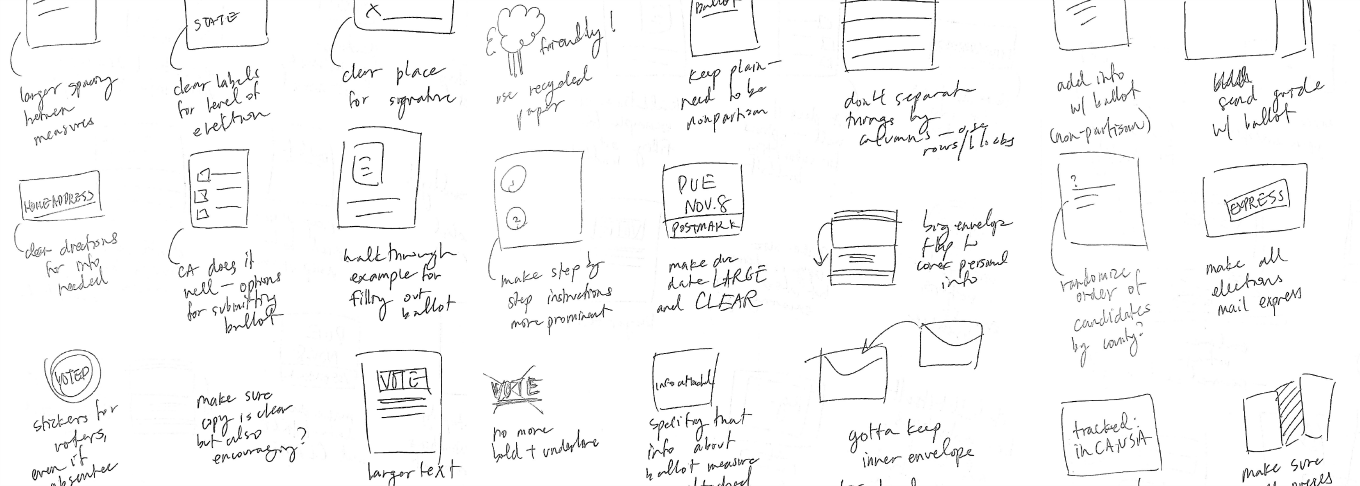 STATE
X
Ballot
larger spacing
between
measures
clear labels
for level of
election
clear place
for signature
friendly!
use recycled
paper
keep plain—
need to be
nonpartisan
don't separate
things by
columns — use
rows/blocks
add info
w/ ballot
(non-partisan)
send guide
w/ ballot
HOME ADDRESS
clear directions
for info
needed
CA does it
well — options
for submitting
ballot
walkthrough
example for
filling out
ballot
1
2
make step by
step instructions
more prominent
DUE
NOV. 8
POSTMARK
make due
date LARGE
and CLEAR
big envelope
flap to
cover personal
info
?
randomize
order of
candidates
by county?
EXPRESS
make all
elections
mail express
VOTED
stickers for
voters,
even if
absentee
make sure
copy is clear
but also
encouraging?
VOTE
larger text
VOTE
no more
bold + underline
info attached
specify that
info about
ballot measure
gotta keep
inner envelope
tracked:
in CA, USA
make sure